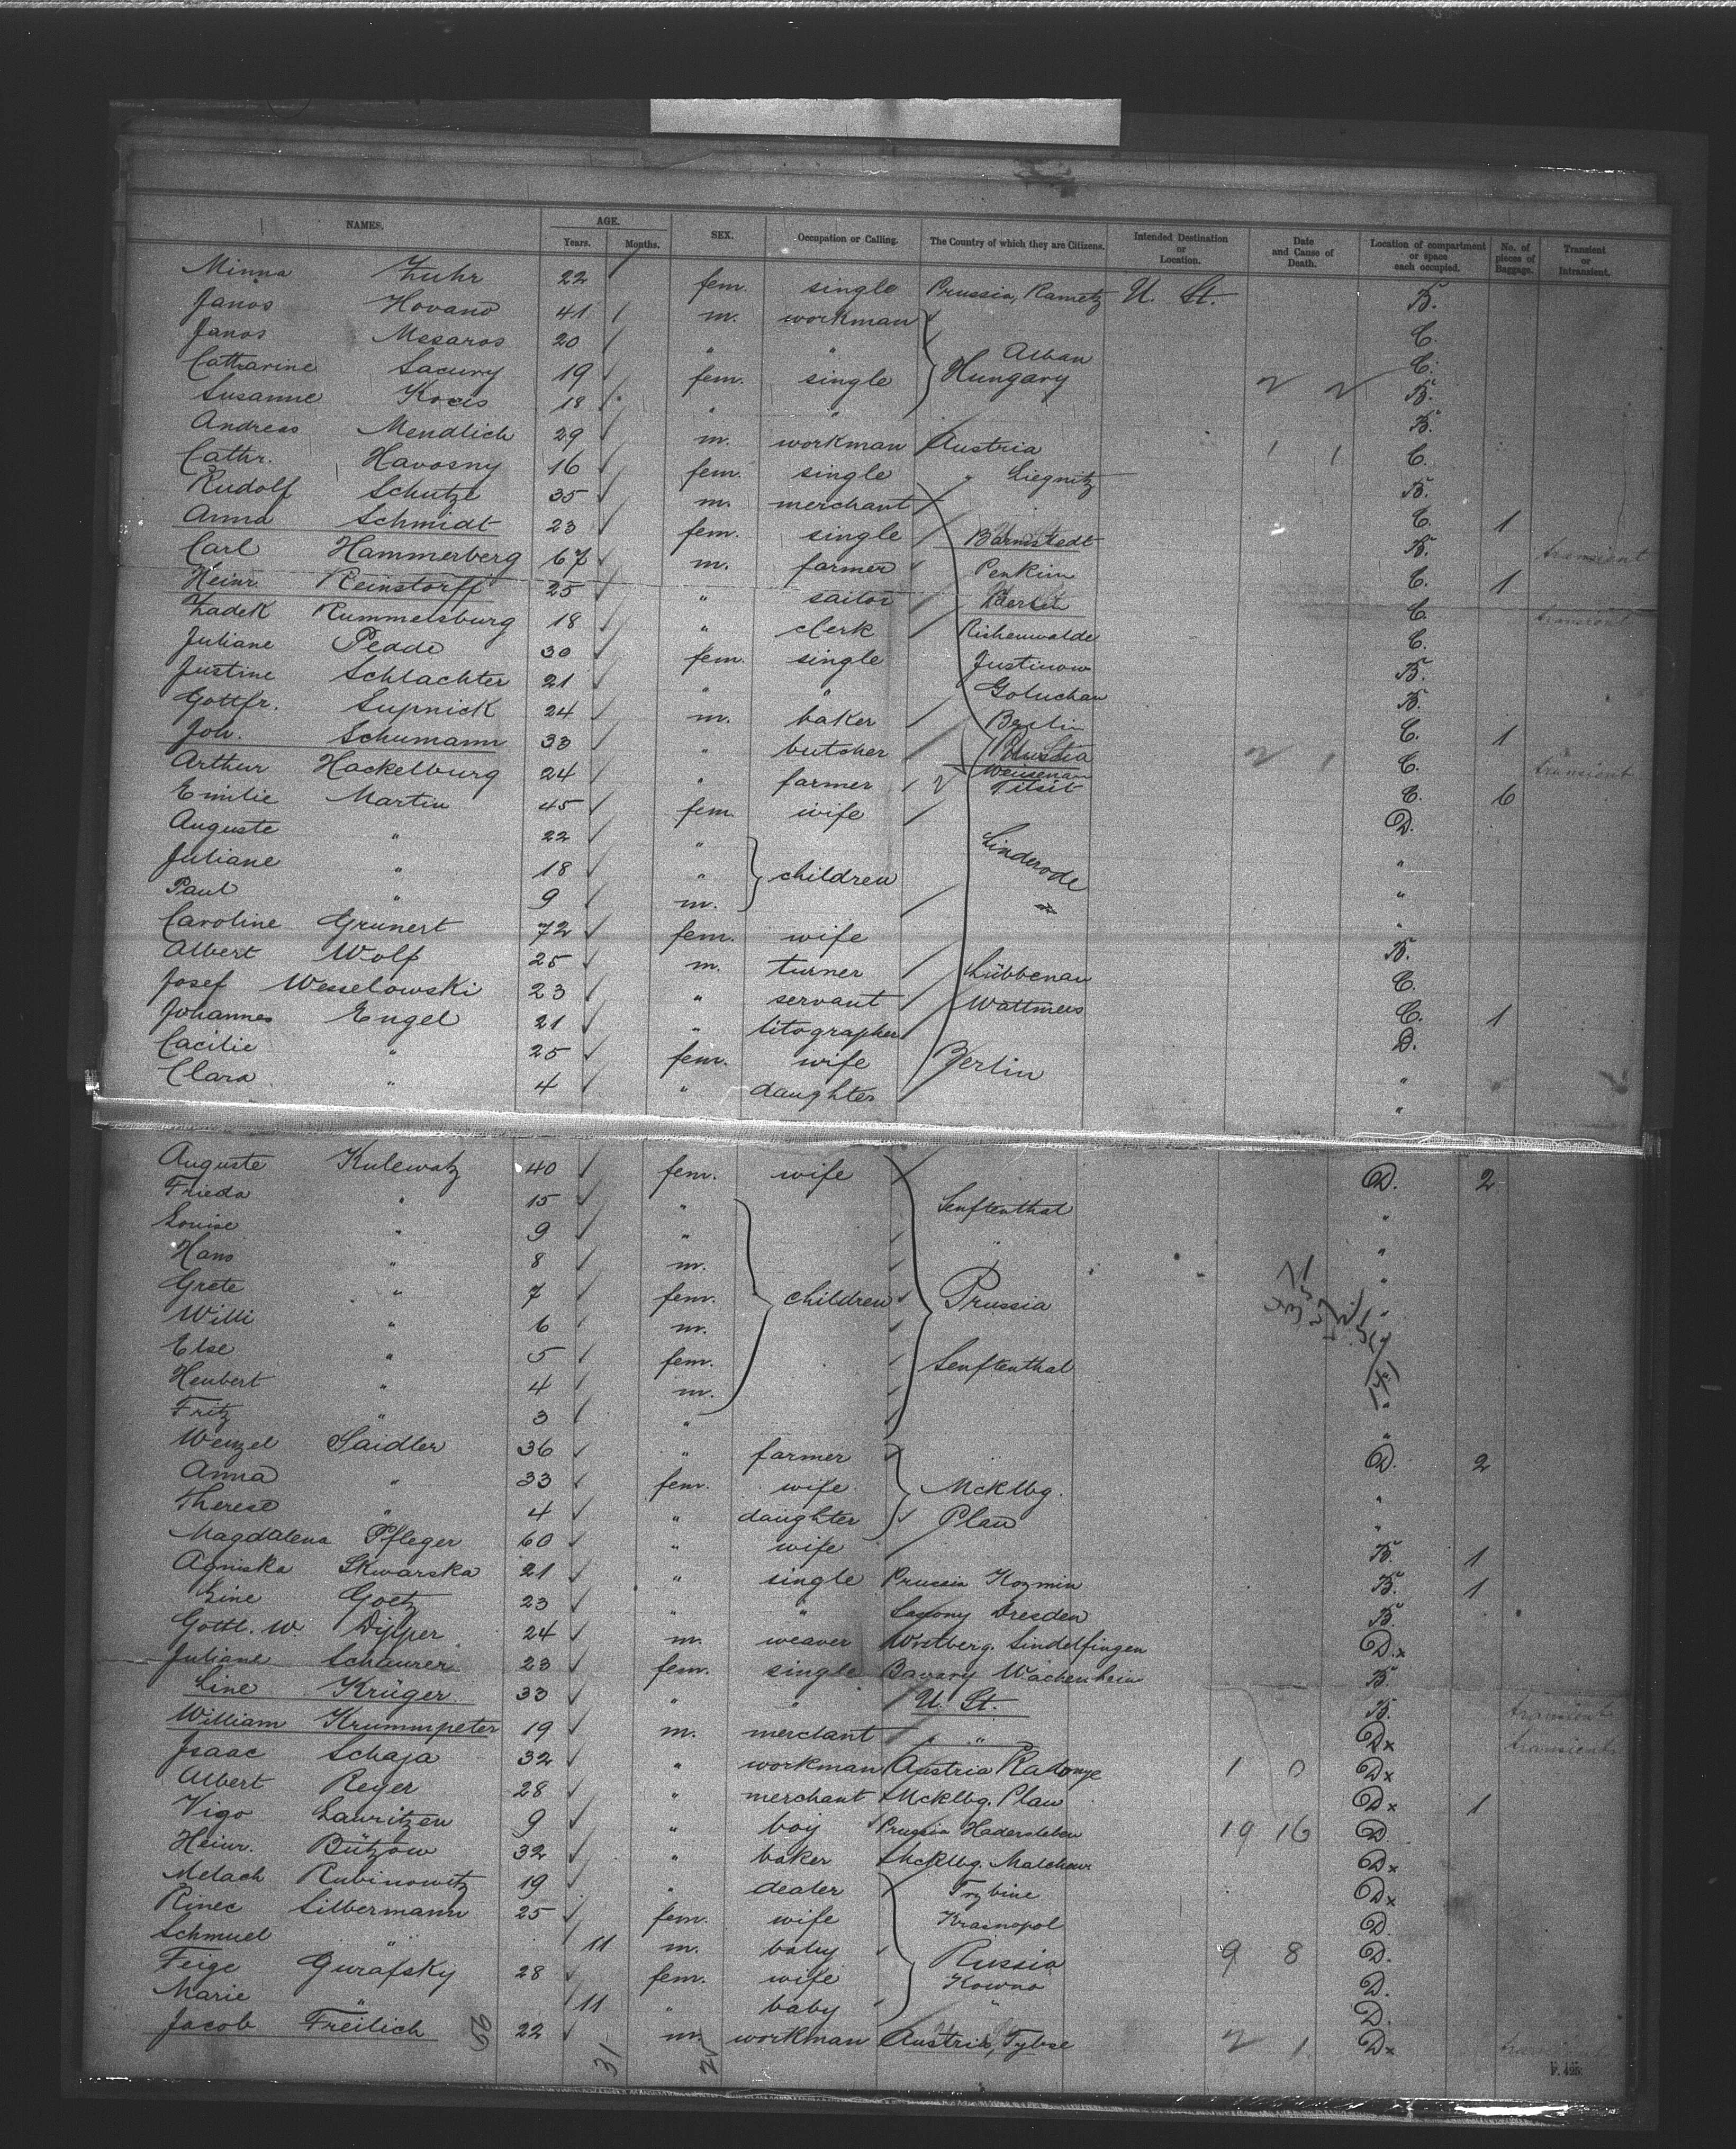 NAMES. AGE. Years. Months. SEX. Occupation or Calling. The Country of which they are Citizens. Intended Destination or Location. Date and Cause of Death. Location of compartment or space each occupied. No. of pieces of Baggage. Transient or Intransient.
Minna Zuhr 22 fem. single Prussia, Rametz U. St. B.
Janos Hovano 41 m. workman C.
Janos Mesaros 20 " " Alban C.
Catharine Sacury 19 fem. single Hungary B.
Susanne Kocis 18 " " B.
Andreas Mendlich 29 m. workman Austria C.
Cathr. Havosny 16 fem. single " Liegnitz B.
Rudolf Schutze 35 m. merchant C. 1
Anna Schmidt 23 fem. single Barmstedt B. transient
Carl Hammerberg 67 m. farmer Penkun C. 1
Heinr. Reinstorff 25 " sailor C. transient
Zadek Rummelsburg 18 " clerk Rishenwalde C.
Juliane Pedde 30 fem. single Justinow B.
Justine Schlachter 21 " " Goluchau B.
Gottfr. Supnick 24 m. baker Berlin C. 1
Joh. Schumann 33 " butcher Prussia Weisenau C. transient
Arthur Hackelburg 24 " farmer Tilsit C. 6
Emilie Martin 45 fem. wife D.
Auguste " 22 " Linderode "
Juliane " 18 " children "
Paul " 9 m. "
Caroline Grunert 72 fem. wife B.
Albert Wolf 25 m. turner Lübbenau C.
Josef Wesselowski 23 " servant Wattmews C. 1
Johannes Engel 21 " litographer D.
Cacilie " 25 fem. wife Berlin "
Clara " 4 " daughter "
Auguste Kulewatz 40 fem. wife D. 2
Frieda " 15 " Senftenthal "
Louise " 9 " " "
Hans " 8 m. "
Grete " 7 fem. children Prussia "
Willi " 6 m.
Else " 5 fem. Senftenthal
Heubert " 4 m. "
Fritz " 3 " "
Wenzel Saidler 36 " farmer D. 2
Anna " 33 fem. wife Mcklbg. "
Therese " 4 " daughter Plau "
Magdalena Pfleger 60 " wife B. 1
Agniska Skwarska 21 " single Prussia Kozmin B. 1
Line Goetz 23 " " Saxony Dresden B.
Gottl. W. Dipper 24 m. weaver Wrtberg. Sindelfingen D.x
Juliane Schaurer 23 fem. single Bavary Wachenheim B.
Line Krüger 33 " " U. St. B. transient
William Krummpeter 19 m. merchant " " Dx transient
Isaac Schaja 32 " workman Austria Radomye 1 0 Dx
Albert Reyer 28 " merchant Mcklbg. Plau Dx 1
Vigo Lauritzen 9 " boy Prussia Hadersleben 19 16 D.
Heinr. Bützow 32 " baker Mcklbg. Malchow Dx
Melach Rubinowitz 19 " dealer Trzbine Dx
Rinec Silbermann 25 fem. wife Krasnopol D.
Schmuel " 11 m. baby Russia 9 8 D.
Feige Gurafsky 28 fem. wife Kowno D.
Marie " 11 " baby " D.
Jacob Freilich 22 m. workman Austria, Tybse 2 1 Dx
56 31
F. 425.